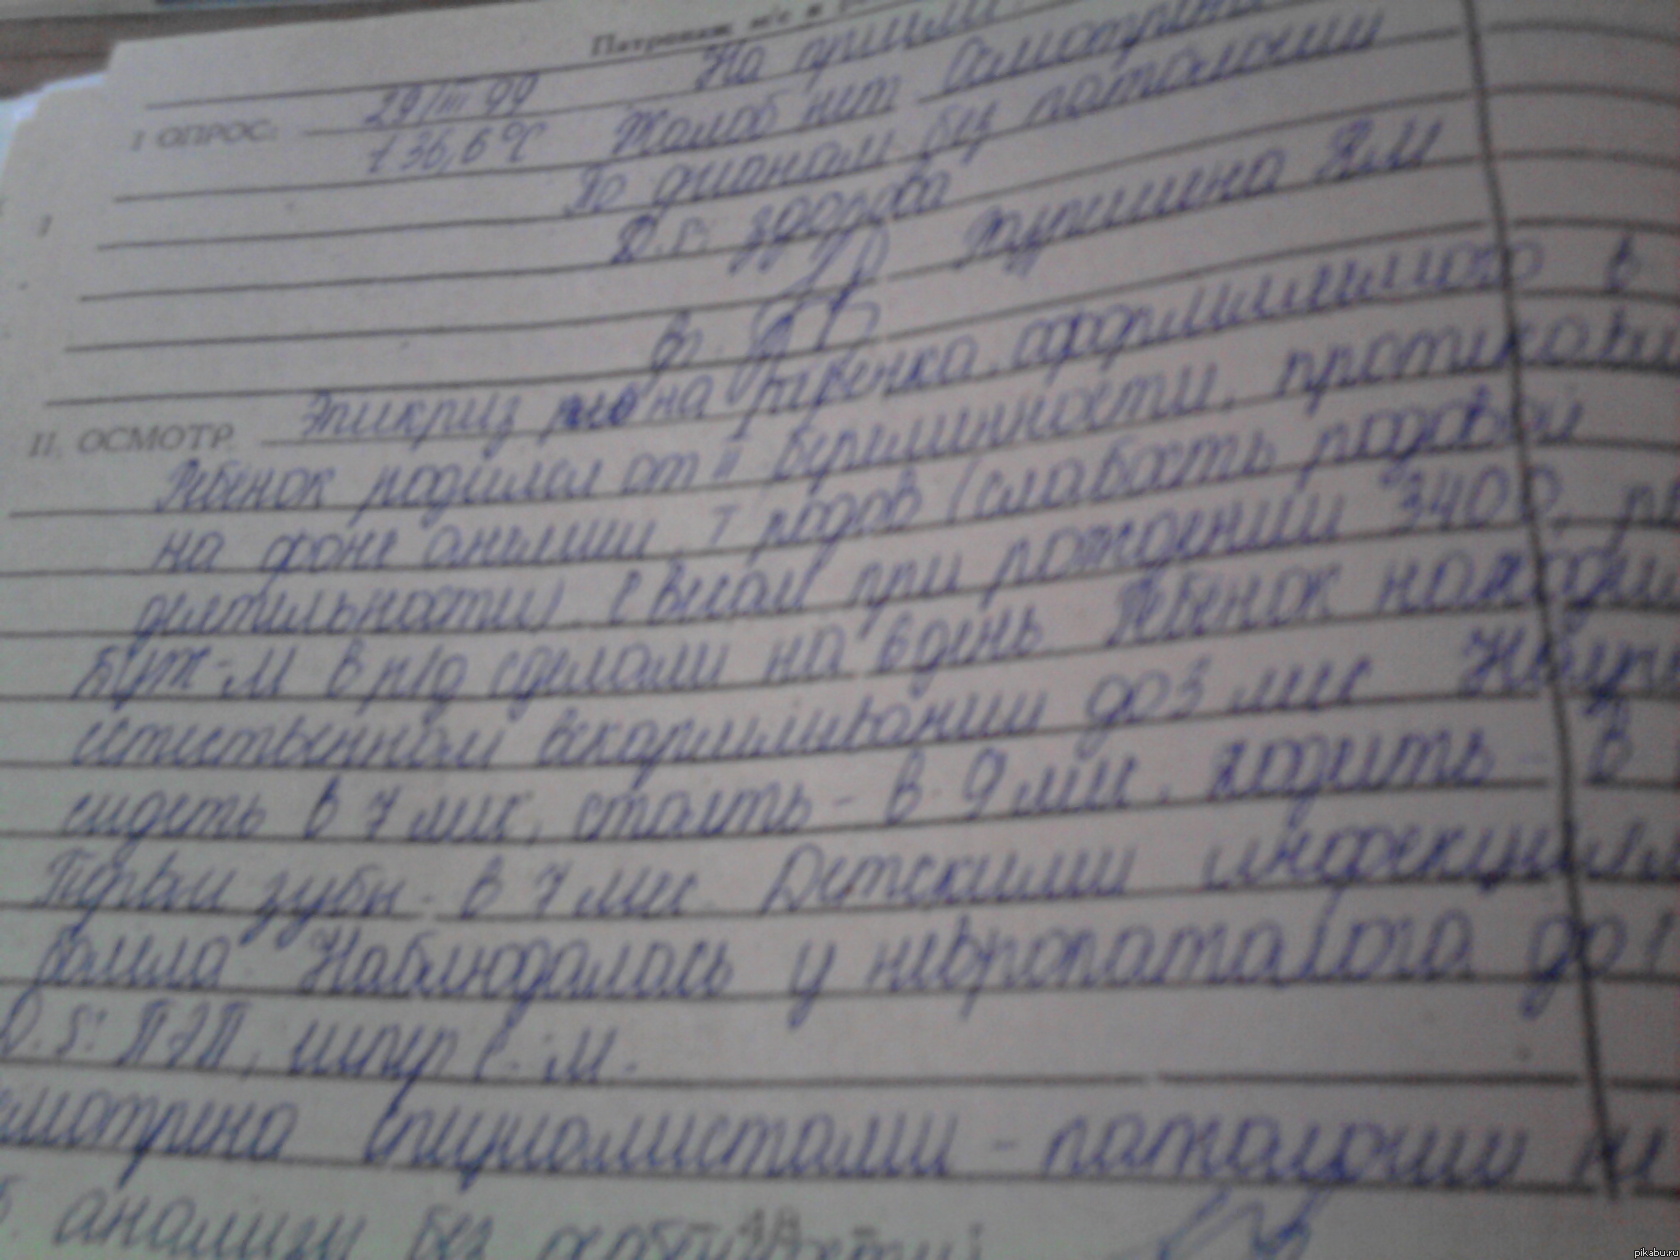 Патронаж м/с к
29/III 99 На приёме
I ОПРОС: t 36,6°C Жалоб нет Осмотрена
По органам без патологии
D.S: здорова
II. ОСМОТР. Эпикриз на ребёнка, оформляемого в
Ребёнок родился от II беременности, протекавшей
на фоне анемии, I родов (слабость родовой
деятельности). С весом при рождении 3400,
БЦЖ-М в р/д сделали на 6 день. Ребёнок находил
естественном вскармливании до 3 мес
сидеть в 7 мес, стоять - в 9 мес, ходить - в
Первые зубы - в 7 мес. Детскими инфекциями
болела Наблюдалась у невропатолога до 1
D.S: ПЭП, гипер с-м.
смотрена специалистами - патологии не
анализы без особенностей
pikabu.ru